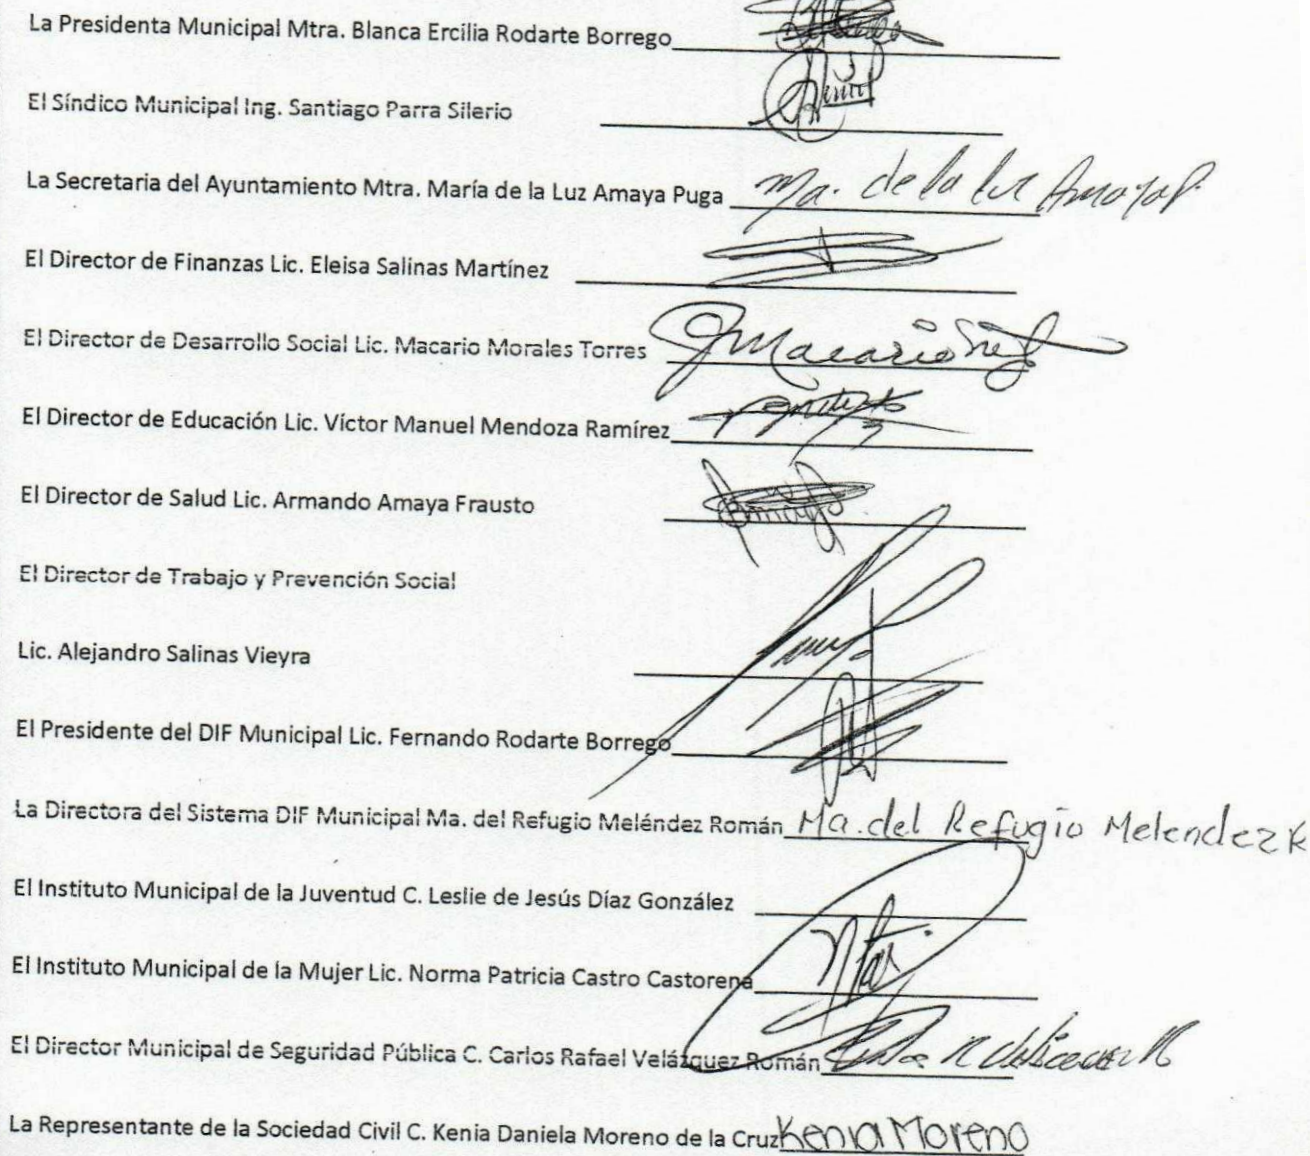 La Presidenta Municipal Mtra. Blanca Ercilia Rodarte Borrego
El Síndico Municipal Ing. Santiago Parra Silerio
La Secretaria del Ayuntamiento Mtra. María de la Luz Amaya Puga Ma. de la Luz Amaya P.
El Director de Finanzas Lic. Eleisa Salinas Martínez
El Director de Desarrollo Social Lic. Macario Morales Torres Macario
El Director de Educación Lic. Víctor Manuel Mendoza Ramírez
El Director de Salud Lic. Armando Amaya Frausto
El Director de Trabajo y Prevención Social
Lic. Alejandro Salinas Vieyra
El Presidente del DIF Municipal Lic. Fernando Rodarte Borrego
La Directora del Sistema DIF Municipal Ma. del Refugio Meléndez Román Ma. del Refugio Melendez R
El Instituto Municipal de la Juventud C. Leslie de Jesús Díaz González
El Instituto Municipal de la Mujer Lic. Norma Patricia Castro Castorena
El Director Municipal de Seguridad Pública C. Carlos Rafael Velázquez Román
La Representante de la Sociedad Civil C. Kenia Daniela Moreno de la Cruz Kenia Moreno